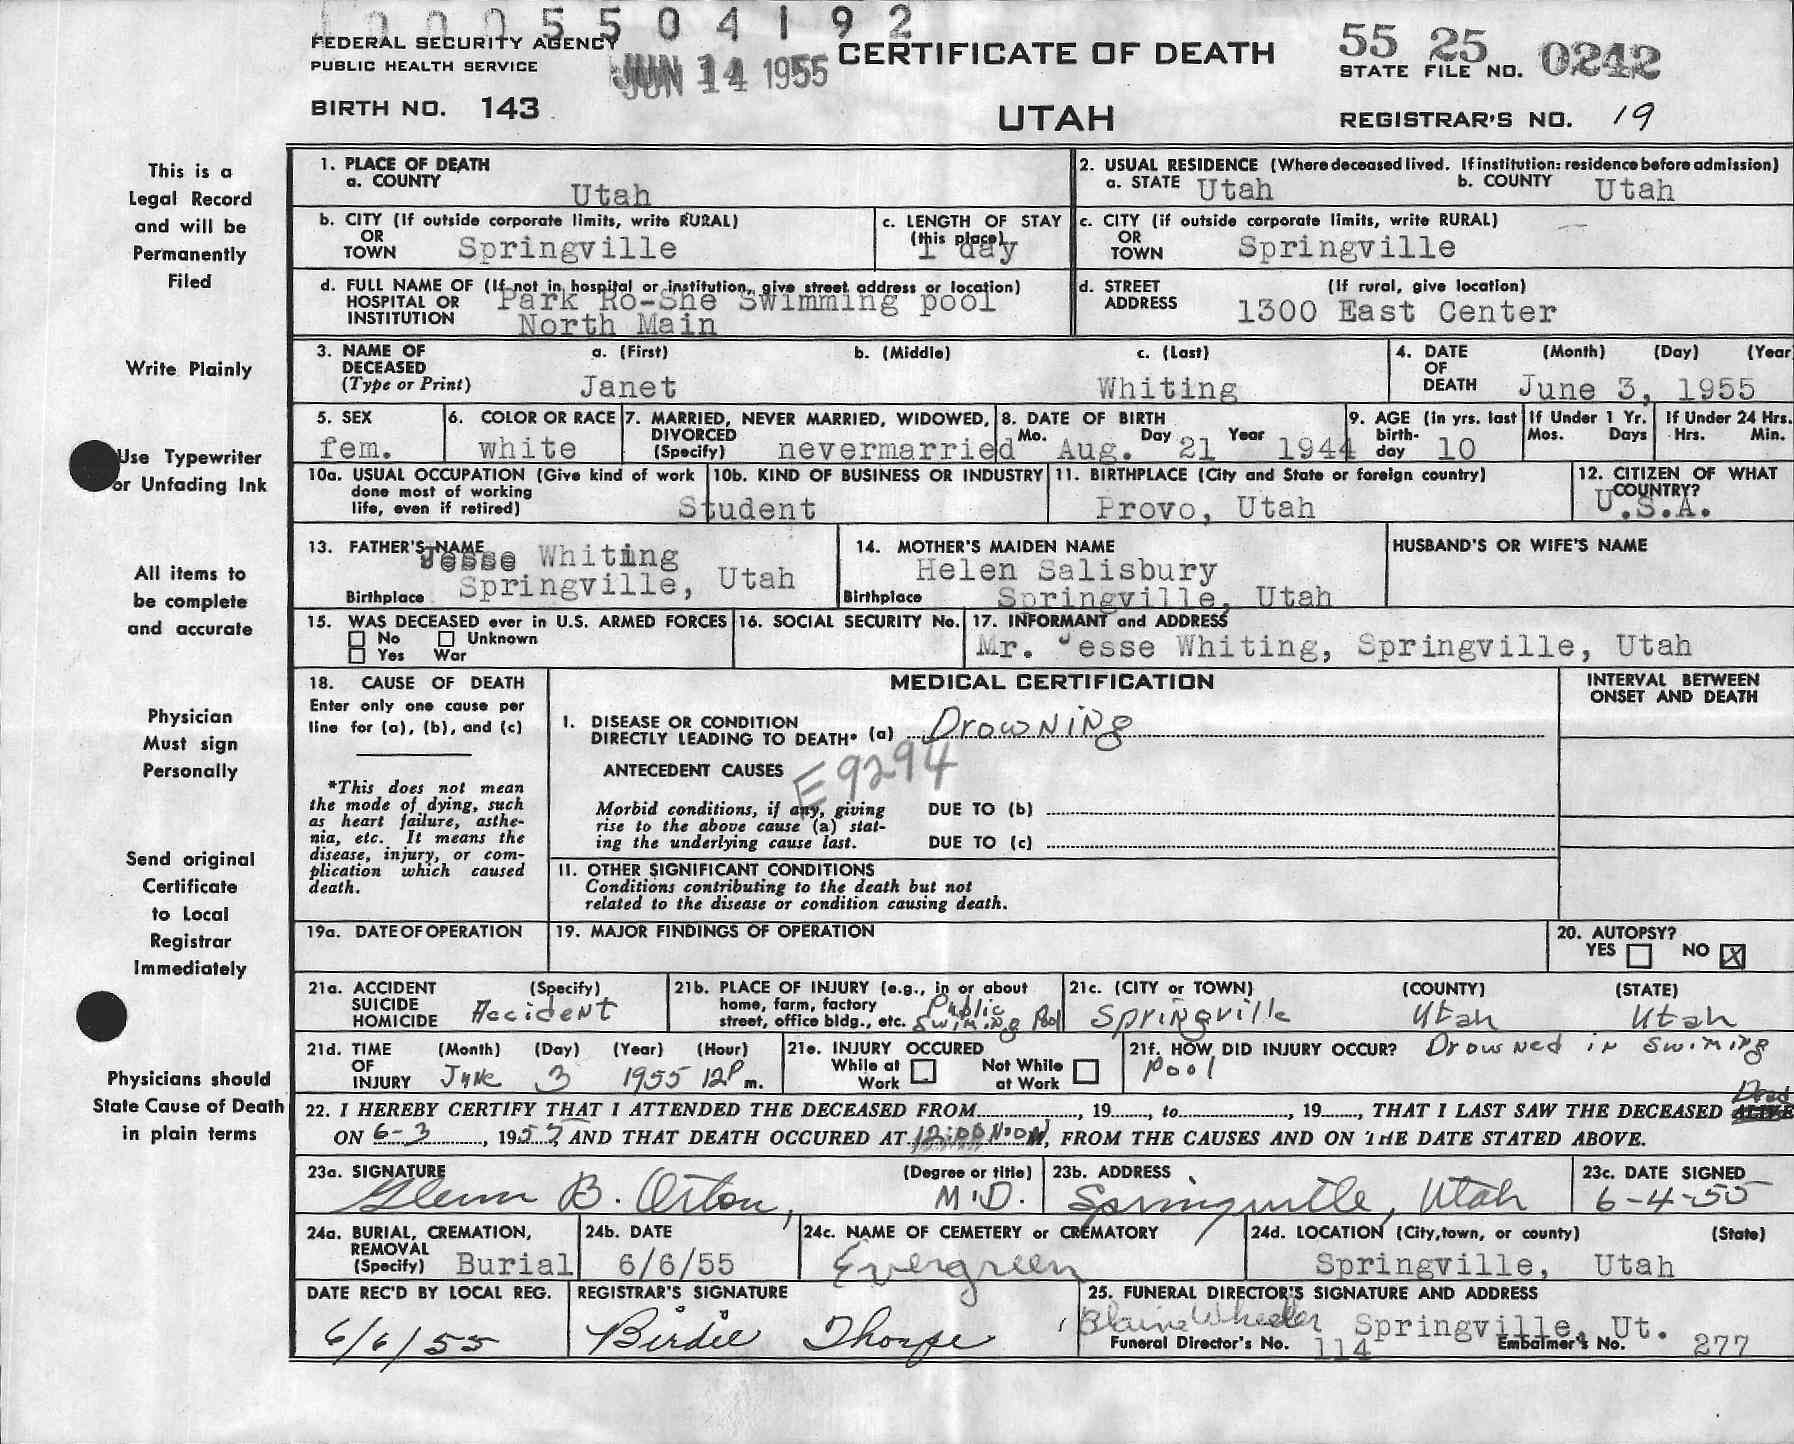 5 5 0 4 1 9 2
FEDERAL SECURITY AGENCY
PUBLIC HEALTH SERVICE
JUN 14 1955
CERTIFICATE OF DEATH
55 25 0242
STATE FILE NO.
BIRTH NO. 143
UTAH
REGISTRAR'S NO. 19
This is a
Legal Record
and will be
Permanently
Filed
Write Plainly
Use Typewriter
or Unfading Ink
All items to
be complete
and accurate
Physician
Must sign
Personally
Send original
Certificate
to Local
Registrar
Immediately
Physicians should
State Cause of Death
in plain terms
1. PLACE OF DEATH
a. COUNTY
Utah
2. USUAL RESIDENCE (Where deceased lived. If institution: residence before admission)
a. STATE Utah b. COUNTY Utah
b. CITY (If outside corporate limits, write RURAL)
OR
TOWN Springville
c. LENGTH OF STAY
(this place)
1 day
c. CITY (if outside corporate limits, write RURAL)
OR
TOWN Springville
d. FULL NAME OF (If not in hospital or institution, give street address or location)
HOSPITAL OR
INSTITUTION
Park Ro-She Swimming pool
North Main
d. STREET
ADDRESS
(If rural, give location)
1300 East Center
3. NAME OF
DECEASED
(Type or Print)
a. (First)
Janet
b. (Middle)
c. (Last)
Whiting
4. DATE
OF
DEATH
(Month) (Day) (Year
June 3, 1955
5. SEX
fem.
6. COLOR OR RACE
white
7. MARRIED, NEVER MARRIED, WIDOWED,
DIVORCED
(Specify) nevermarried
8. DATE OF BIRTH
Mo. Aug. Day 21 Year 1944
9. AGE (in yrs. last
birth-
day 10
If Under 1 Yr.
Mos. Days
If Under 24 Hrs.
Hrs. Min.
10a. USUAL OCCUPATION (Give kind of work
done most of working
life, even if retired)
10b. KIND OF BUSINESS OR INDUSTRY
Student
11. BIRTHPLACE (City and State or foreign country)
Provo, Utah
12. CITIZEN OF WHAT
COUNTRY?
U.S.A.
13. FATHER'S NAME
Jesse Whiting
Birthplace Springville, Utah
14. MOTHER'S MAIDEN NAME
Helen Salisbury
Birthplace Springville, Utah
HUSBAND'S OR WIFE'S NAME
15. WAS DECEASED ever in U.S. ARMED FORCES
No Unknown
Yes War
16. SOCIAL SECURITY No.
17. INFORMANT and ADDRESS
Mr. Jesse Whiting, Springville, Utah
18. CAUSE OF DEATH
Enter only one cause per
line for (a), (b), and (c)
*This does not mean
the mode of dying, such
as heart failure, asthe-
nia, etc. It means the
disease, injury, or com-
plication which caused
death.
MEDICAL CERTIFICATION
INTERVAL BETWEEN
ONSET AND DEATH
I. DISEASE OR CONDITION
DIRECTLY LEADING TO DEATH* (a) Drowning
ANTECEDENT CAUSES
E9294
Morbid conditions, if any, giving
rise to the above cause (a) stat-
ing the underlying cause last.
DUE TO (b)
DUE TO (c)
11. OTHER SIGNIFICANT CONDITIONS
Conditions contributing to the death but not
related to the disease or condition causing death.
19a. DATE OF OPERATION
19. MAJOR FINDINGS OF OPERATION
20. AUTOPSY?
YES NO X
21a. ACCIDENT
SUICIDE
HOMICIDE
(Specify)
Accident
21b. PLACE OF INJURY (e.g., in or about
home, farm, factory
street, office bldg., etc.
Public
Swiming Pool
21c. (CITY or TOWN) (COUNTY) (STATE)
Springville Utah Utah
21d. TIME
OF
INJURY
(Month) (Day) (Year) (Hour)
June 3 1955 12P m.
21e. INJURY OCCURED
While at
Work
Not While
at Work
21f. HOW DID INJURY OCCUR? Drowned in swiming
pool
22. I HEREBY CERTIFY THAT I ATTENDED THE DECEASED FROM, 19, to, 19, THAT I LAST SAW THE DECEASED ALIVE
Dead
ON 6-3, 1955, AND THAT DEATH OCCURED AT 12:00 Noon, FROM THE CAUSES AND ON THE DATE STATED ABOVE.
23a. SIGNATURE
Glenn B. Orton,
(Degree or title)
M.D.
23b. ADDRESS
Springville, Utah
23c. DATE SIGNED
6-4-55
24a. BURIAL, CREMATION,
REMOVAL
(Specify) Burial
24b. DATE
6/6/55
24c. NAME OF CEMETERY or CREMATORY
Evergreen
24d. LOCATION (City, town, or county) (State)
Springville, Utah
DATE REC'D BY LOCAL REG.
6/6/55
REGISTRAR'S SIGNATURE
Birdie Thorpe
25. FUNERAL DIRECTOR'S SIGNATURE AND ADDRESS
Blaine Wheeler Springville, Ut.
Funeral Director's No. 114 Embalmer's No. 277